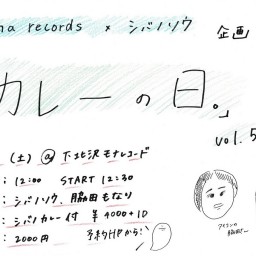 na records × シバノソウ 企画
カレーの日。」
vol.5
(土) @ 下北沢モナレコード
: 12:00 START 12:30
: シバノソウ、脇田もなり
: シバノカレー付 ¥4000+1D
: 2000円 予約HPから!